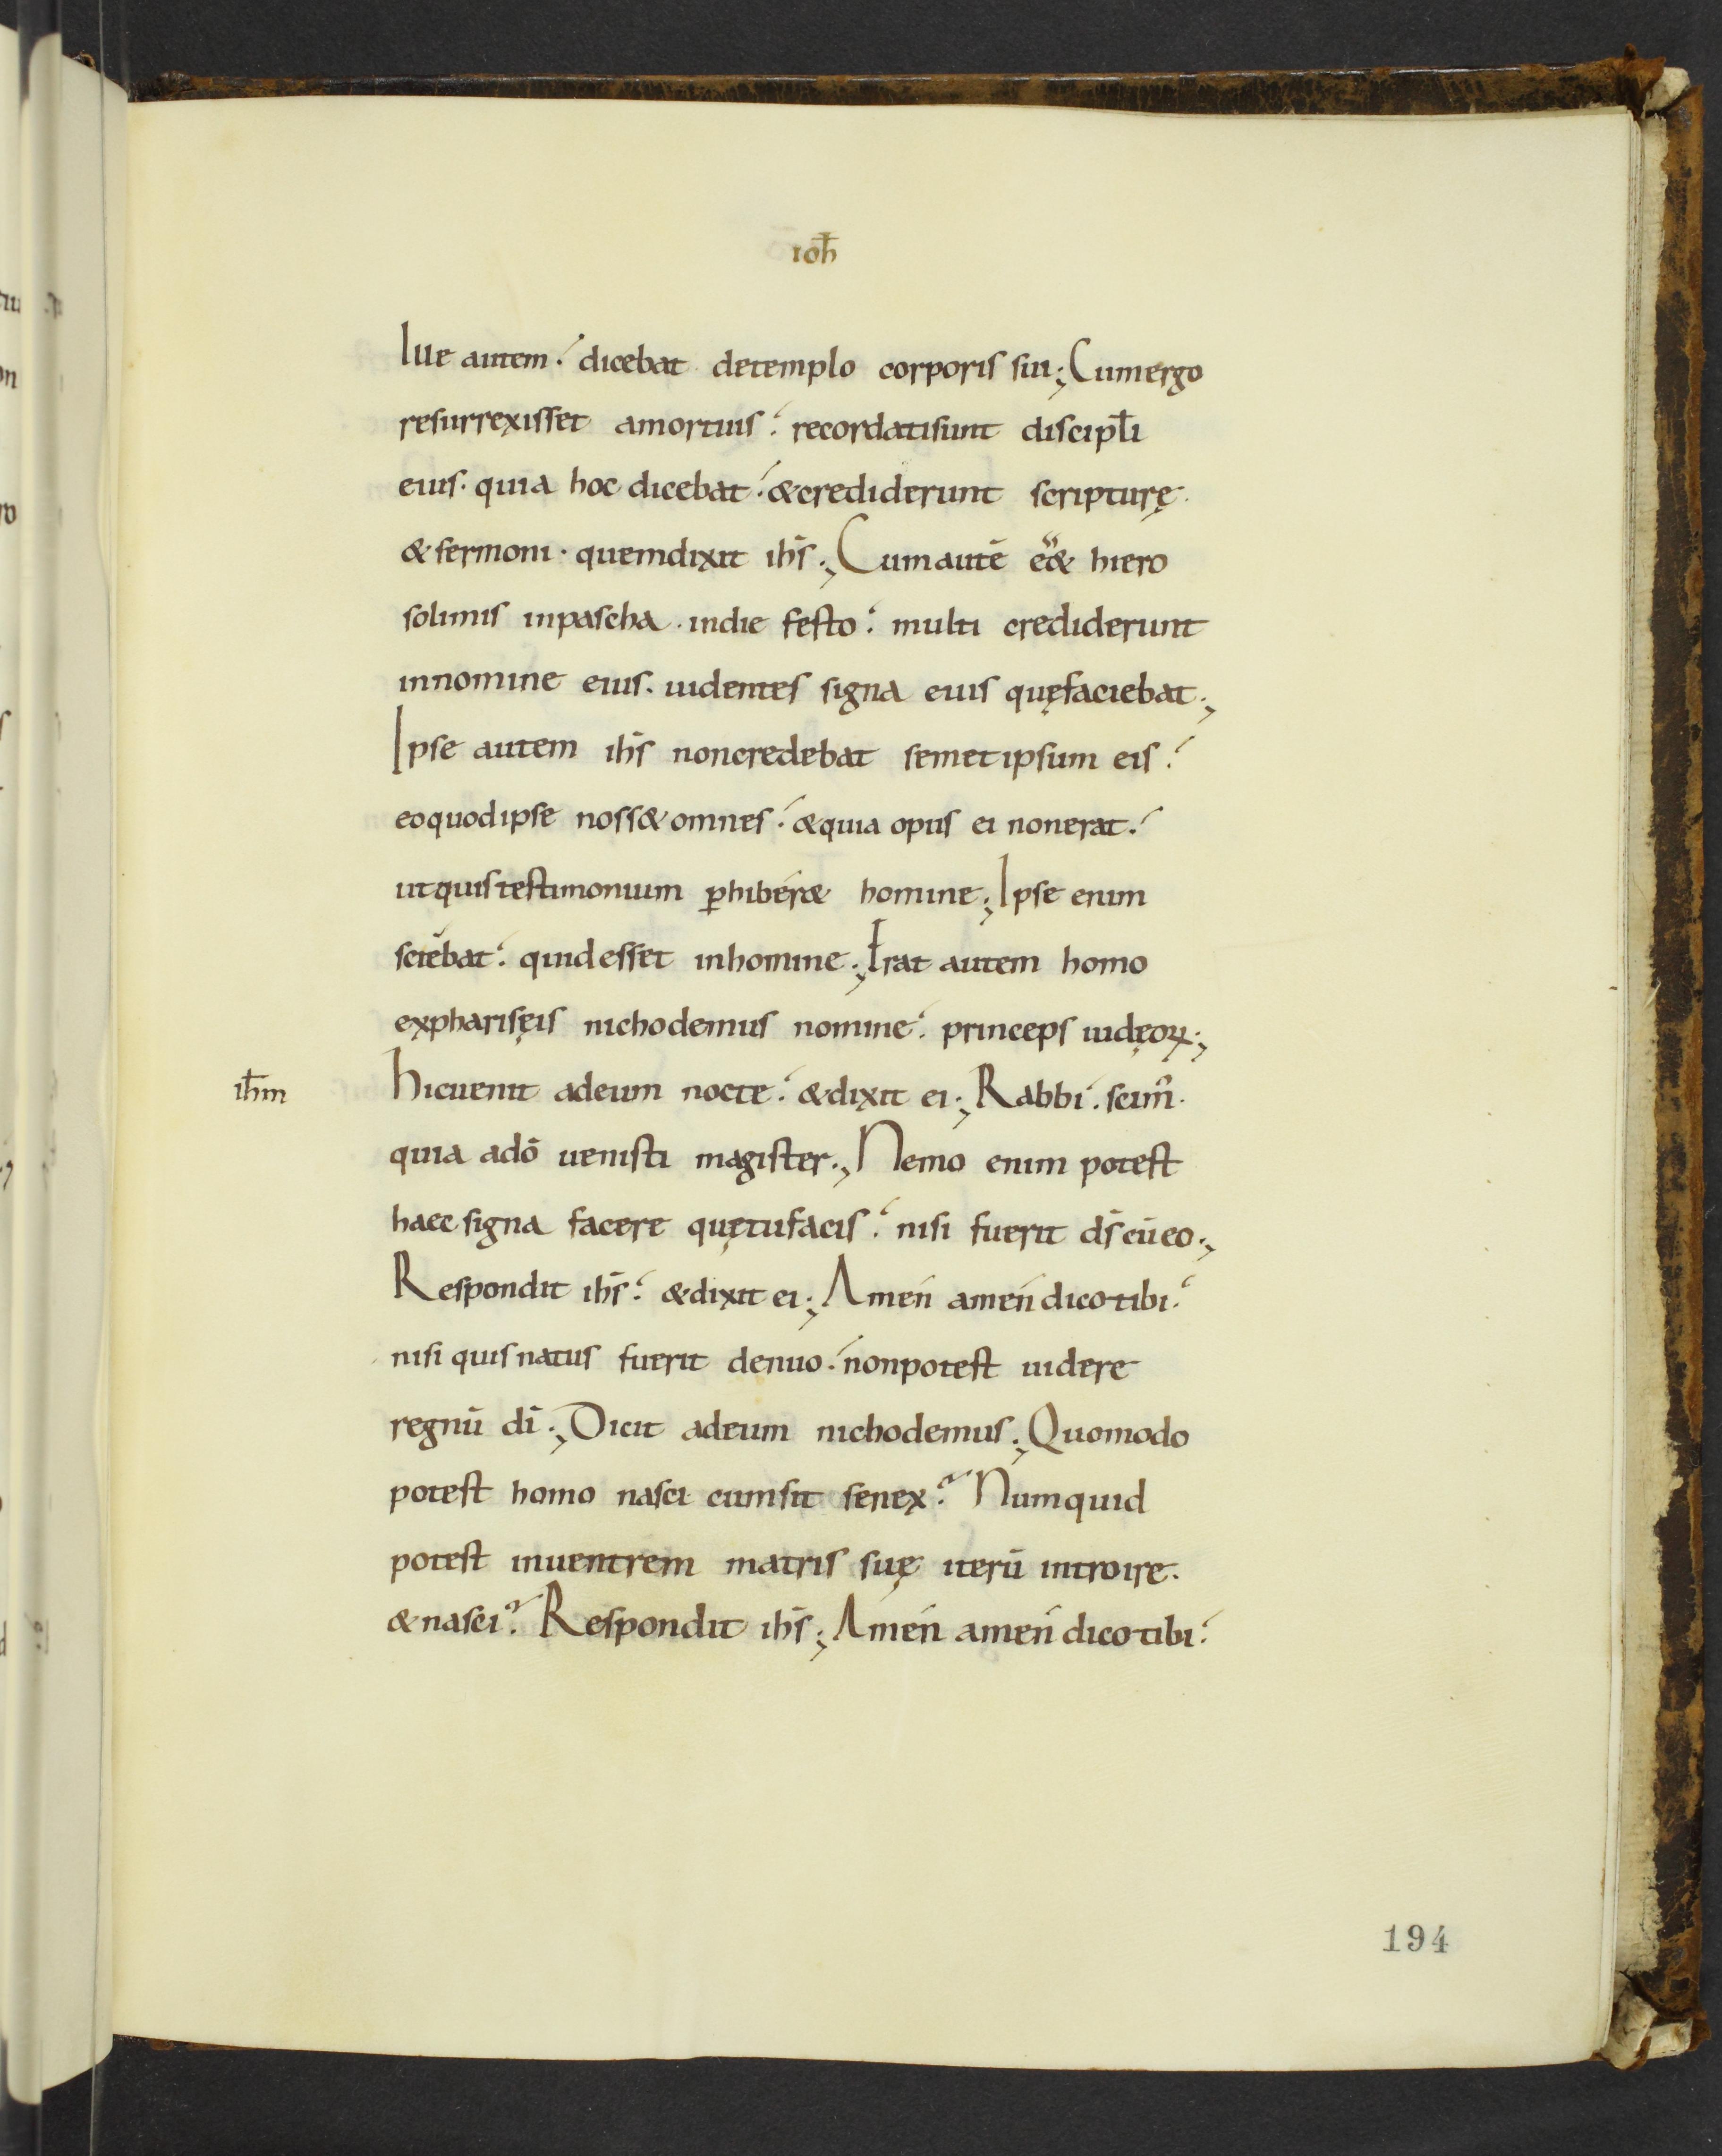 ioh̄
Ille autem. dicebat detemplo corporis sui; Cumergo
resurrexisset amortuis. recordatisunt discipl̄i
eius. quia hoc dicebat. &crediderunt scripturę.
&sermoni. quemdixit ih̄s; Cumautē eēt& hiero
solimis inpascha. indie festo. multi crediderunt
innomine eius. uidentes signa eius quęfaciebat;
Ipse autem ih̄s noncredebat semetipsum eis.
eoquodipse noss&omnes. &quia opus ei nonerat.
utquistestimonium ꝑhiber& homine; Ipse enim
sciebat. quidesset inhomine; Erat autem homo
expharisęis nichodemus nomine. princeps iudęoꝝ;
ih̄m
hicuenit adeum nocte. &dixit ei; Rabbi. scim᷒.
quia adō uenisti magister; Nemo enim potest
haec signa facere quętufacis. nisi fuerit ds̄ cūeo;
Respondit ih̄s. &dixit ei; Amen amen dicotibi.
nisi quisnatus fuerit denuo. nonpotest uidere
regnū dī; Dicit adeum nichodemus; Quomodo
potest homo nasci cumsit senex? Numquid
potest inuentrem matris suę iterū introire.
&nasci? Respondit ih̄s; Amen amen dicotibi.
194